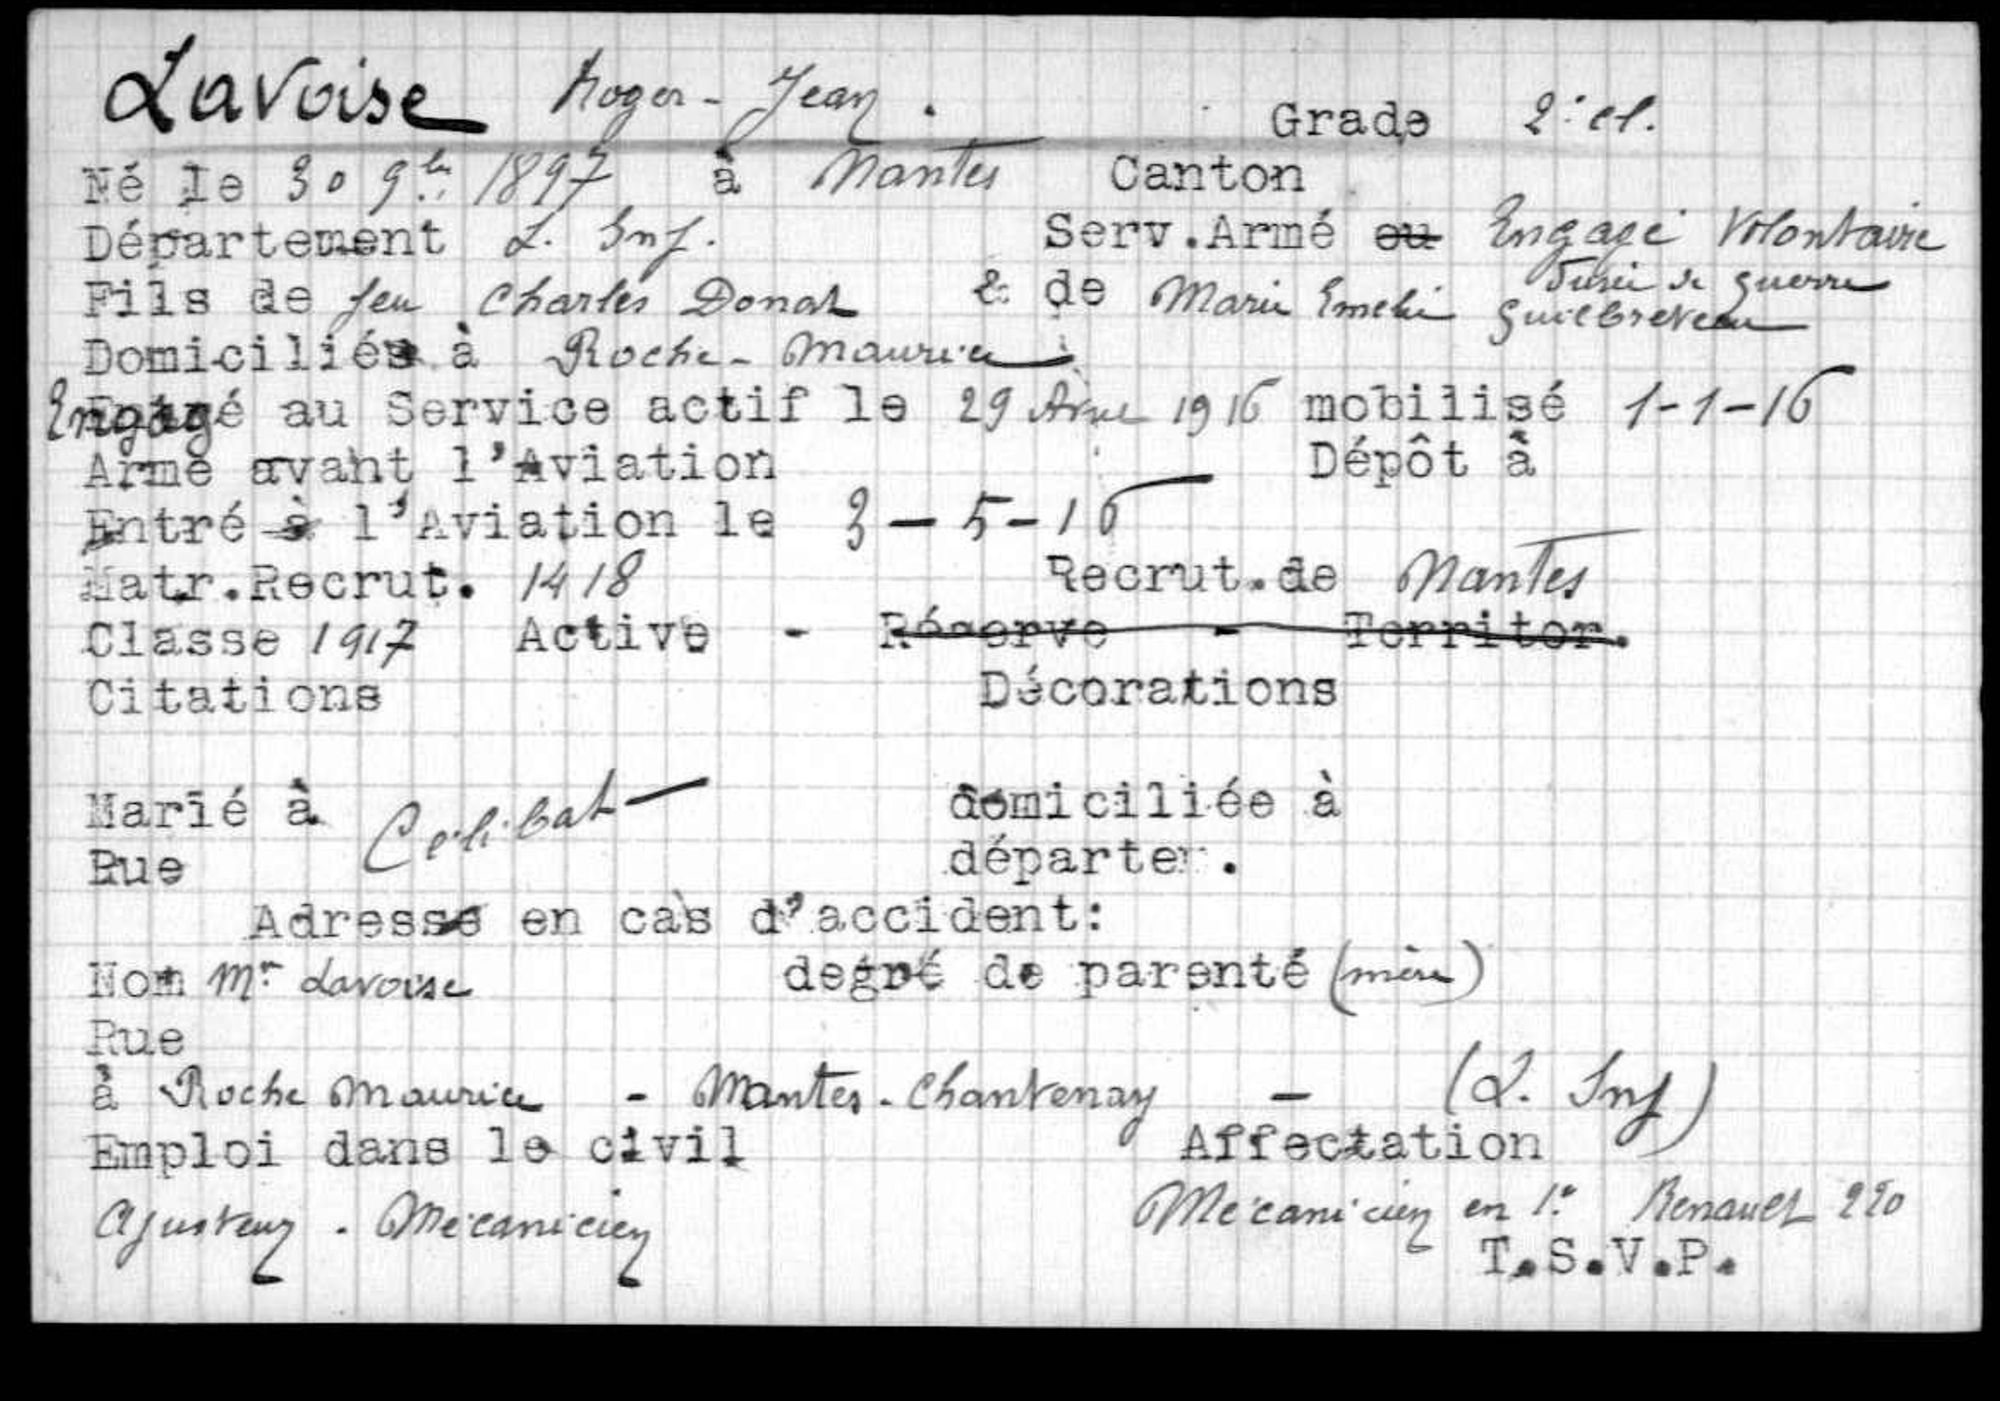 Lavoise Roger-Jean. Grade 2e cl.
Né le 30 9bre 1897 à Nantes Canton
Département L. Inf. Serv.Armé ou Engagé Volontaire
durée de guerre
Fils de feu Charles Donat & de Marie Emelie Guilbreteau
Domiciliés à Roche-Maurice
Engagé au Service actif le 29 Avril 1916 mobilisé 1-1-16
Arme avant l'Aviation Dépôt à
Entré à l'Aviation le 3-5-16
Matr.Recrut. 1418 Recrut.de Nantes
Classe 1917 Active - Réserve - Territor.
Citations Décorations
Marié à Célibat domiciliée à
Rue départem.
Adresse en cas d'accident:
Nom Me Lavoise degré de parenté (mère)
Rue
à Roche Maurice - Nantes-Chantenay - (L. Inf)
Emploi dans le civil Affectation
Ajusteur. Mécanicien Mécanicien en 1er Renault 220
T.S.V.P.